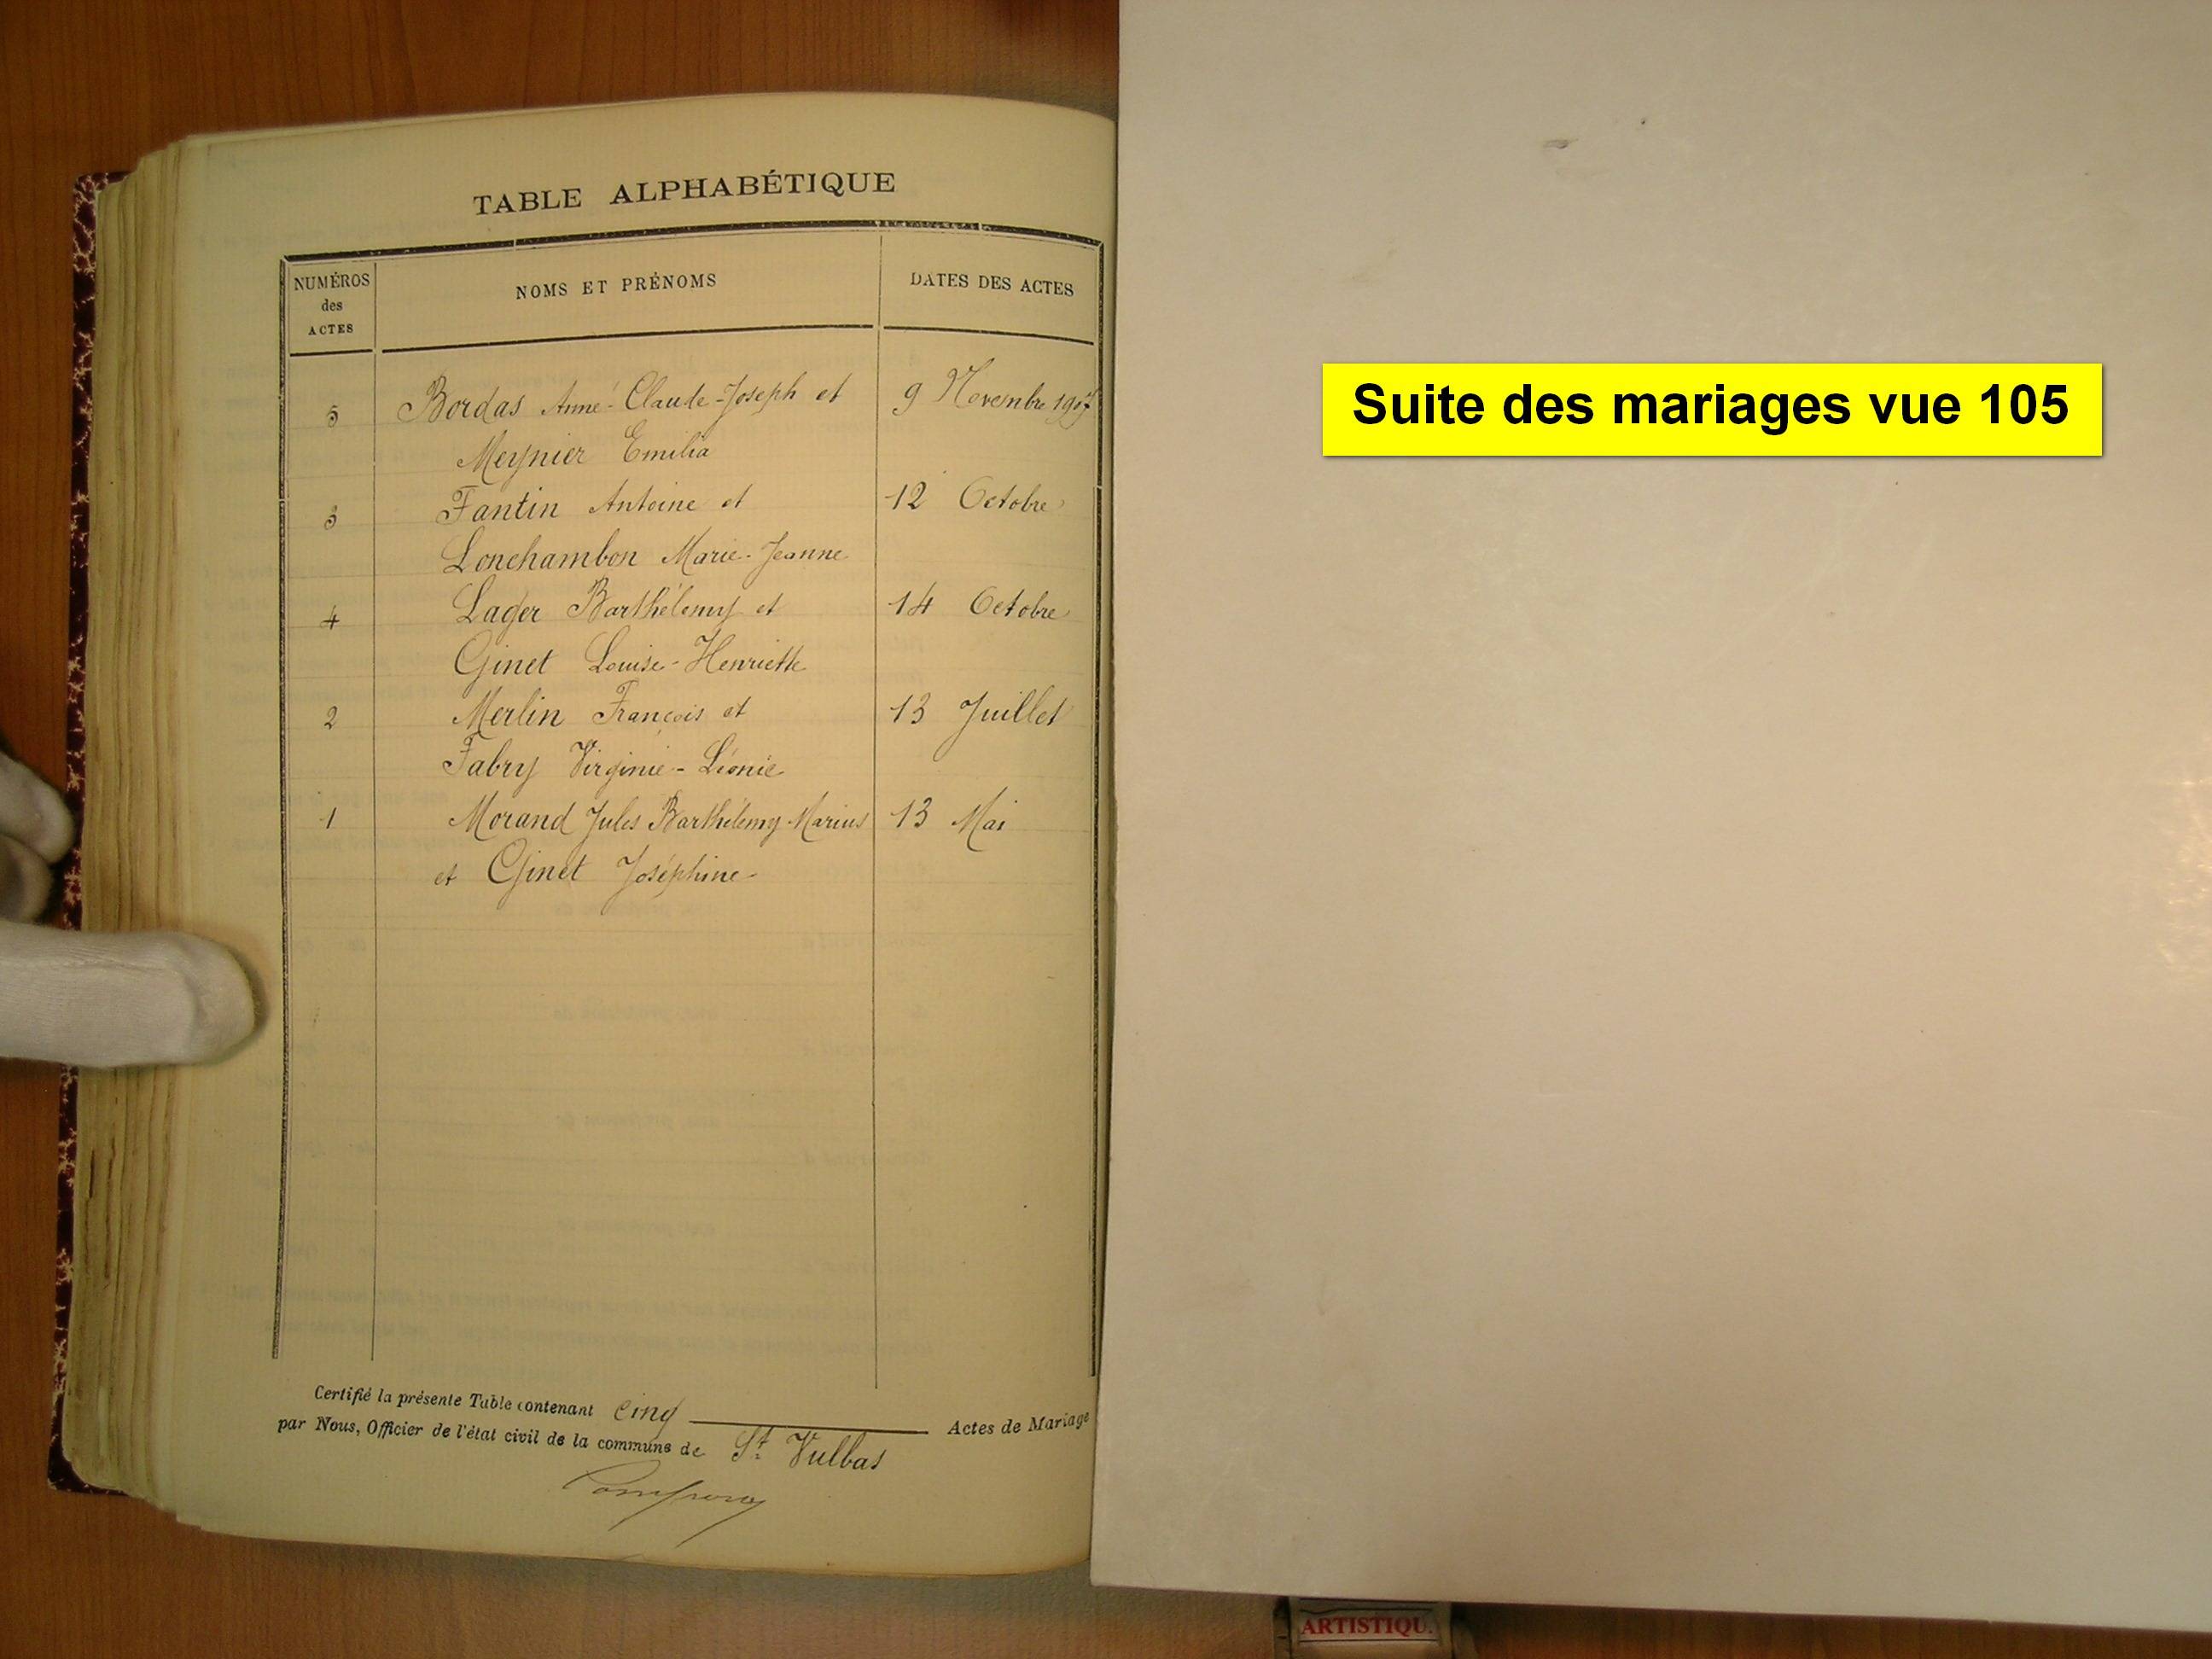 TABLE ALPHABÉTIQUE
NUMÉROS des ACTES NOMS ET PRÉNOMS DATES DES ACTES
5 Bordas Anné-Claude-Joseph et 9 Novembre 1907
Meynier Emilia
3 Fantin Antoine et 12 Octobre
Lonchambon Marie-Jeanne
4 Lager Barthélemy et 14 Octobre
Ginet Louise-Henriette
2 Merlin François et 13 Juillet
Fabry Virginie-Léonie
1 Morand Jules Barthélemy-Marius 13 Mai
et Ginet Joséphine
Certifié la présente Table contenant cinq Actes de Mariage
par Nous, Officier de l'état civil de la commune de St. Vulbas
Suite des mariages vue 105
ARTISTIQU